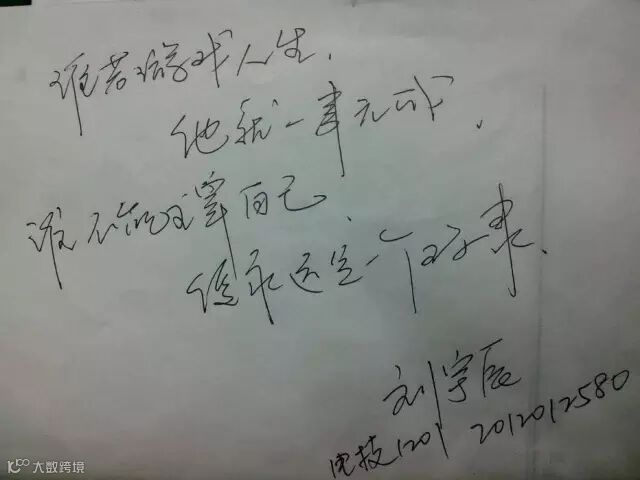 谁若游戏人生，
他就一事无成，
谁不能主宰自己、
便永远是一个奴隶、
刘宇辰
电技1201 2012012580
大数跨境